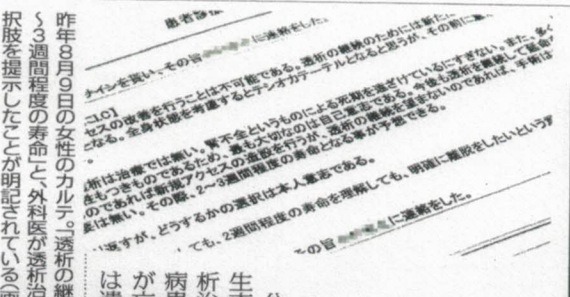 患者
サインを貰い、その旨
に連絡をした。
セスの改善を行うことは不可能である。透析の継続のためには新たに
なる。全身状態を考慮するとテシオカテーテルとなると思うが、その前に重
析は治療では無い。腎不全というものによる死期を遠ざけているにすぎない。また、多く
もつきものであるため、最も大切なのは自己意志である。今後も透析を継続して
のであれば新規アクセスの造設を行うが、透析の継続を望まないのであれば、手術は
は無い。その際、2～3週間程度の寿命となる事が予想できる。
返すが、どうするかの選択は本人意志である。
ても、2週間程度の寿命を理解しても、明確に離脱をしたいという
の旨
に連絡をした。
昨年８月９日の女性のカルテ。「透析の継
～３週間程度の寿命」と、外科医が透析治
択肢を提示したことが明記されている（画
生
析治
病
が
は